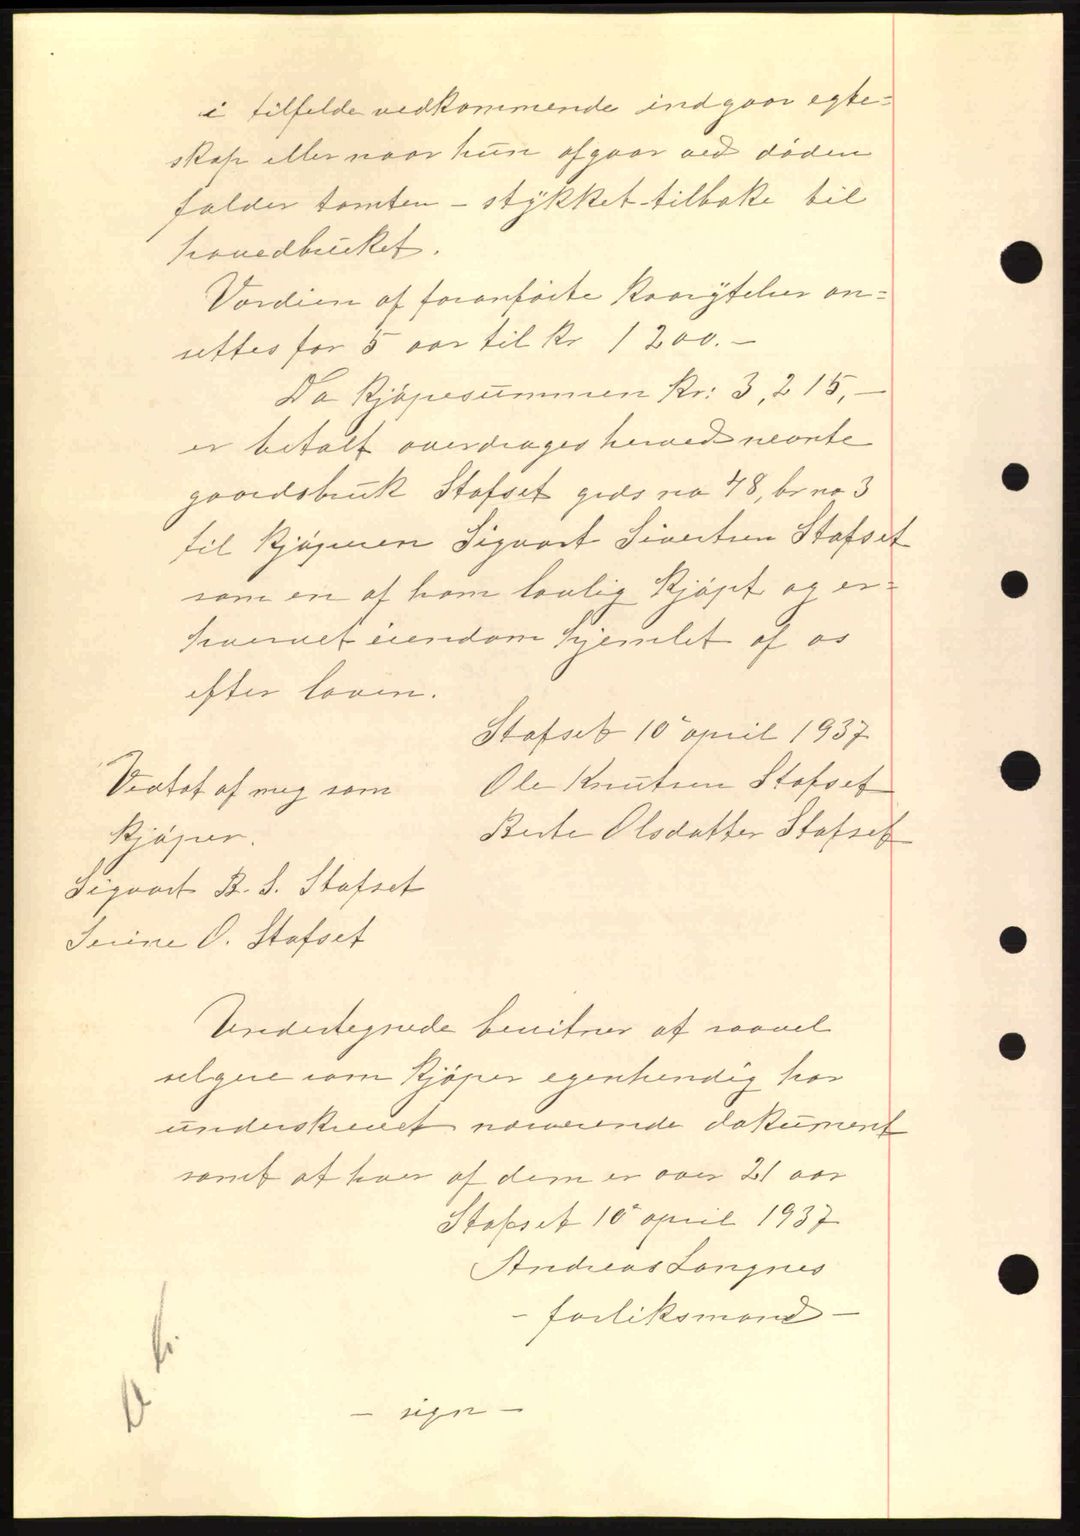 i tilfelde vedkommende indgaar egte=
skap eller naar hun afgaar ved døden
falder tomten - stykket tilbake til
hovedbruket.
Værdien af foranførte kaarytelser an=
settes for 5 aar til kr 1200.-
Da kjøpesummen kr: 3,215,-
er betalt overdrages herved nevnte
gaardsbruk Stafset grds no 48, br no 3
til kjøperen Sigvart Sivertsen Stafset
som en af ham lovlig kjøpt og er=
hvervet eiendom hjemlet af os
efter loven.
Stafset 10 april 1937
Vedtat af meg som Ole Knutsen Stafset
kjøper. Berte Olsdatter Stafset
Sigvart B. S. Stafset
Serine O. Stafset
Undertegnede bevitner at saavel
selgere som kjøper egenhendig har
underskrevet nærværende dokument
samt at hver af dem er over 21 aar
Stafset 10 april 1937
Andreas Langnes
- forliksmand -
- sign -